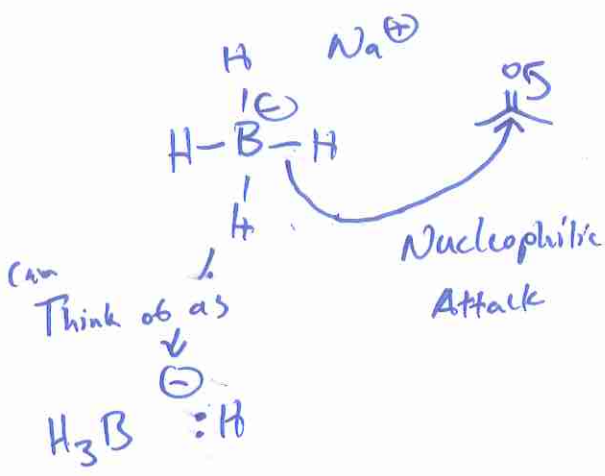 H
Na⊕
⊖
H–B–H
H
O
Nucleophilic
Attack
Can
Think of as
⊖
H₃B :H